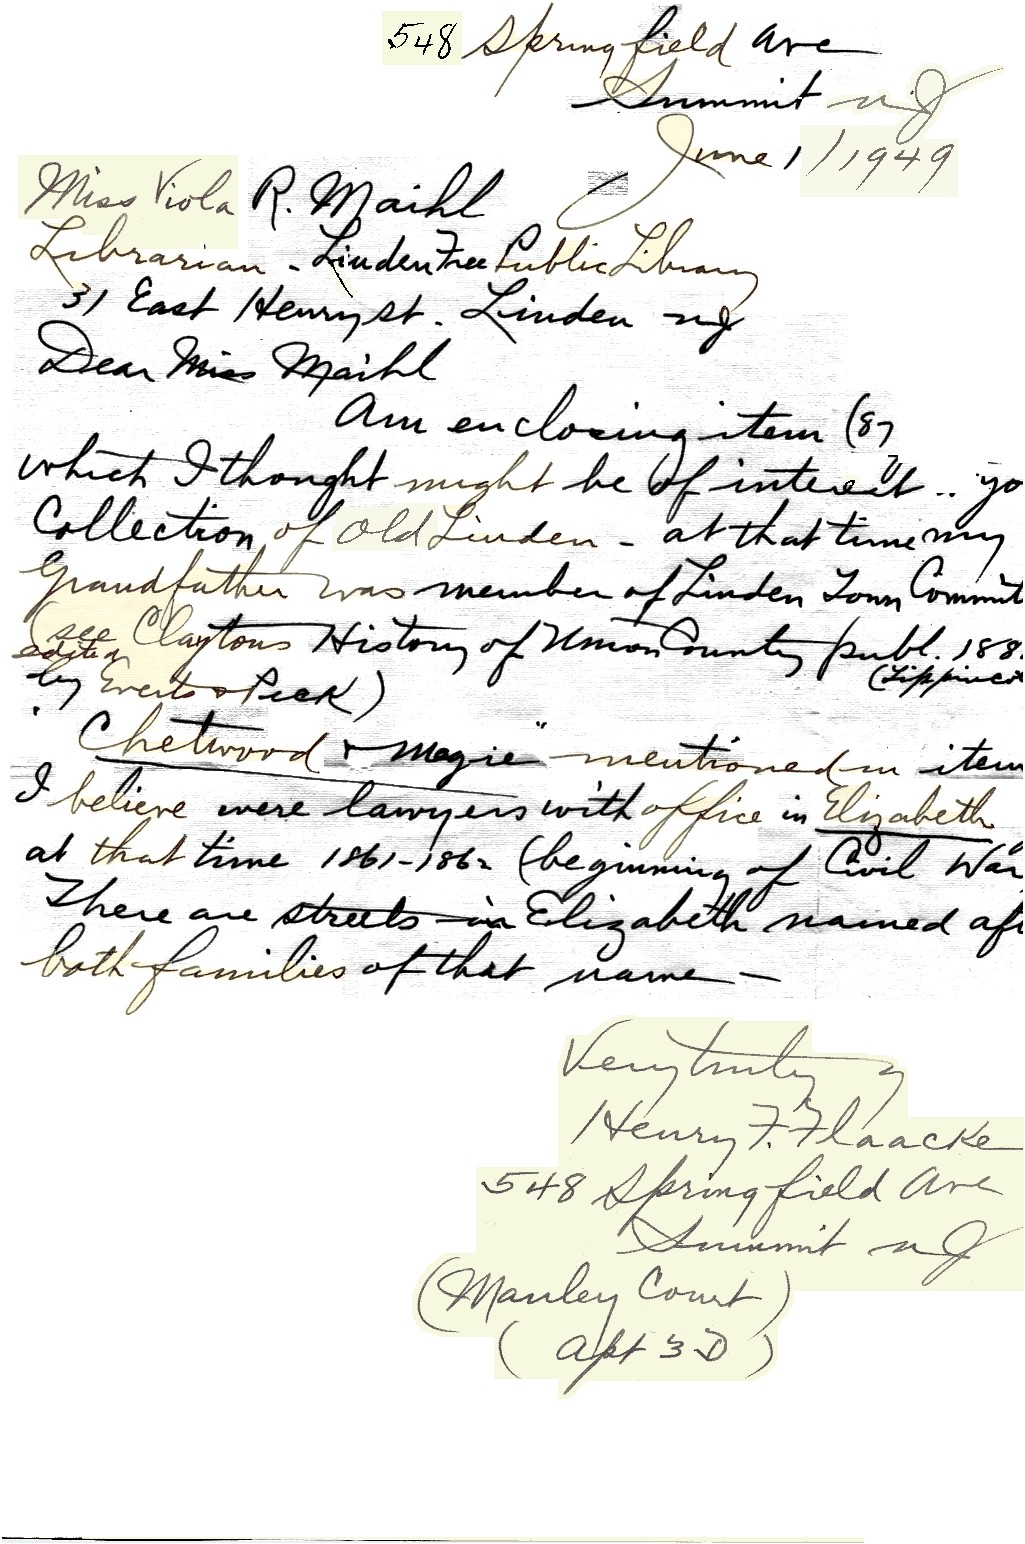 548 Springfield Ave
Summit NJ
June 1/1949
Miss Viola R. Maihl
Librarian - Linden Free Public Library
31 East Henry St. Linden NJ
Dear Miss Maihl
Am enclosing item
which I thought might be of interest .. yo
Collection of Old Linden - at that time my
Grandfather was member of Linden Town Committ
(see Claytons History of Union County publ. 188
edited
(Lippincot
by Everts & Peck)
"Chetwood & Magie" mentioned in item
I believe were lawyers with office in Elizabeth
at that time 1861-1862 (beginning of Civil War
There are streets in Elizabeth named aft
both families of that name -
Very truly y
Henry F. Flaacke
548 Springfield Ave
Summit NJ
(Manley Court)
(Apt 3D)